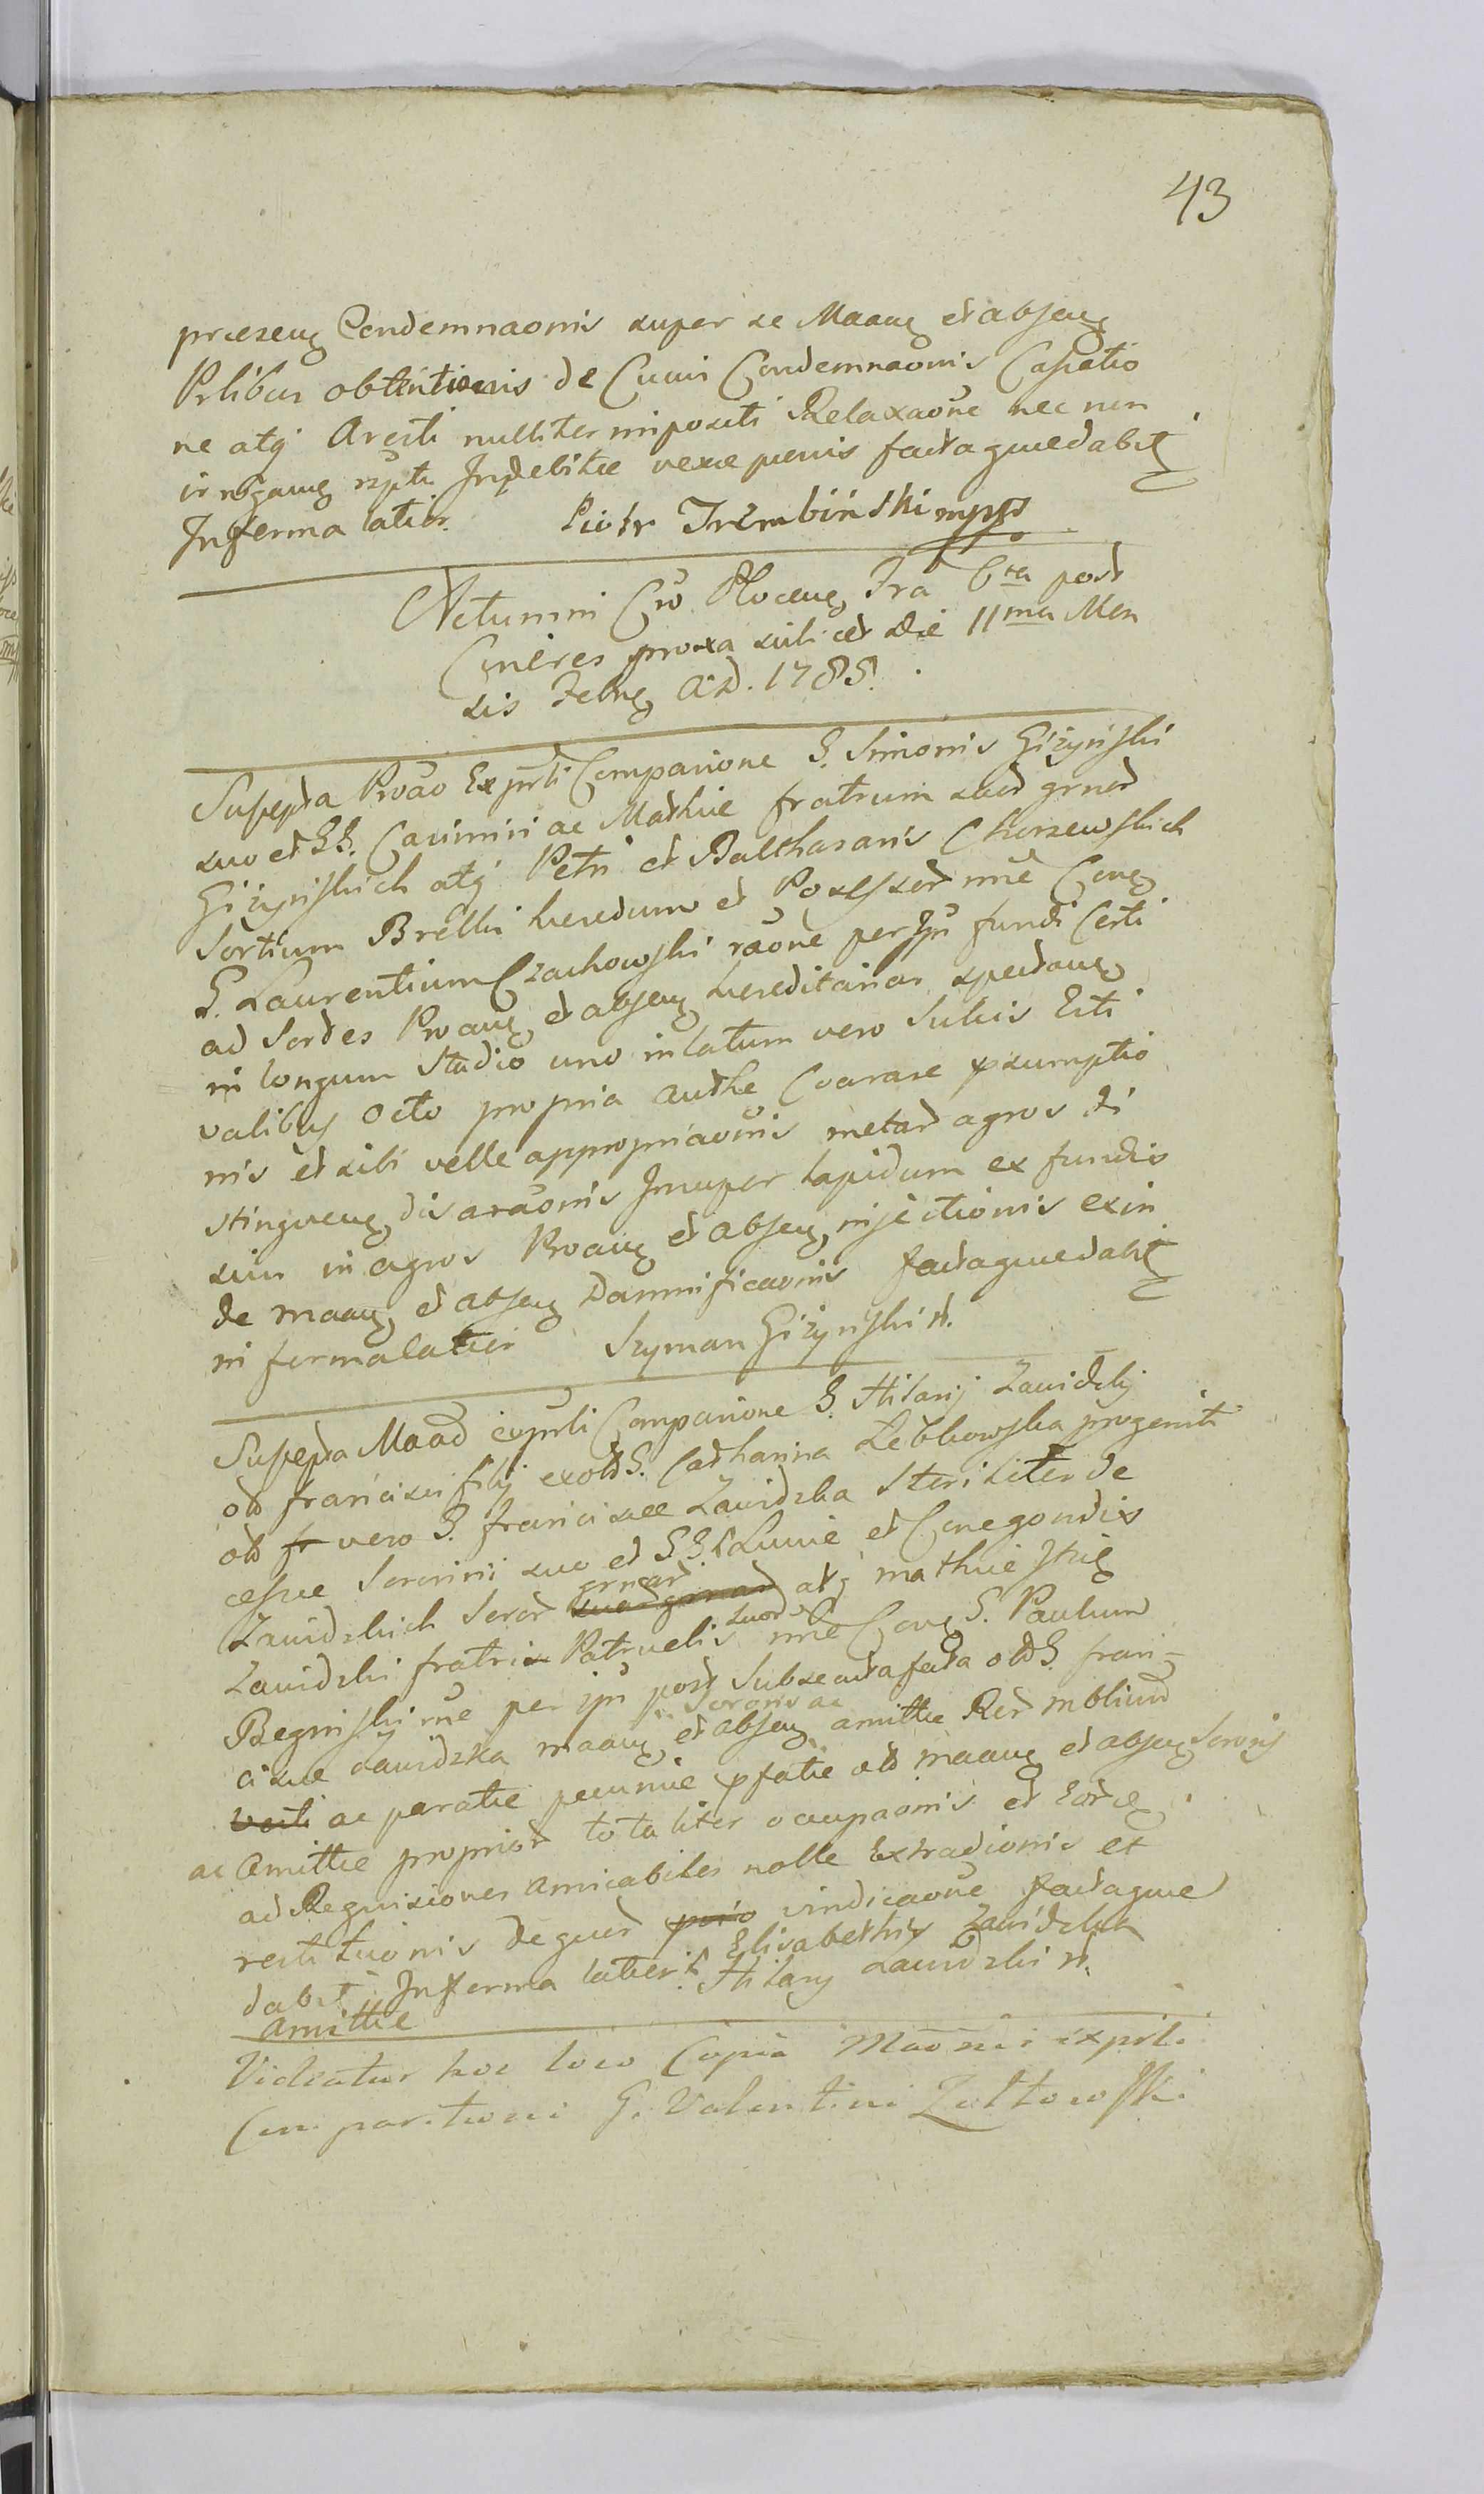 43
præseng Condemnaonis super se Maang et abseng
Prlibus obtentionis de Cuius Condemnaonis Cassatio
ne atq Aresti nulliter impositi Relaxaone nec non
irrogang rspte Indebitæ vexæ penis factaquedabit
Informa latior. Piotr Trembiński mpp
Actum in Cro Plocens, Fra 6ta post
Cineres proxa scilicet die 11ma Men
sis Febrg A. D. 1785.
Suscepta Proao Ex prsli Comparione G. Simonis Giżyński
suo et GG. Casimiri ac Mathiæ fratrum suor grnor
Giżynskich atq Petri et Balthasaris Chorzewskich
Sortium Brelki heredum et Possessor nne Cong
G. Laurentium Czachowski raone per Ipu fundi Certi
ad Sortes Proang et abseng hereditarias spectang
in longum Stadio uno in latum vero Sulcis Esti
valibus octo propria authe Coarare psumptio
nis et sibi velle appropriaonis metar agros di
stingueng, disaraonis Insuper lapidum ex fundis
suis in agros Proang et abseng, injectionis exin
de maang et abseng Damnificaonis factaquedabit
in forma latior Szyman Giżynski n.
Suscepta Maao exprsli Comparione G. Hilarij Zawidzkij
olo francisci filij exolo G. Catharina Zebkowska progeniti
olo fr vero G. franciscæ Zawidzka Steriliter de
cessæ Sororinii suo et GG. Luciæ et Conegondis
Zawidzkich Soror grnar suar grnar atq mathiæ
Zawidzki fratris Patruelis suor nne Cong G. Paulum
Begnisky rne per ipu post Subsecta fata olo G. fran=
ciscæ Zawidzka maang et abseng Sororis ac amittæ Rer mblium
ac paratæ pecuniæ pfatæ olo maang et abseng Sororis
ac Amittæ proprior totaliter ocupaonis et Eor
ad Requisiones amicabiles nolle Extradionis et
restituonis dequor vindicaone factaque
dabit Informa latiori. Elisabethis Zawidzka
amittæ Hilary Zawidzki n.
Videatur hoc loco Copia Maonis exprsli
Comparitioni G. Valentini Żółtowski